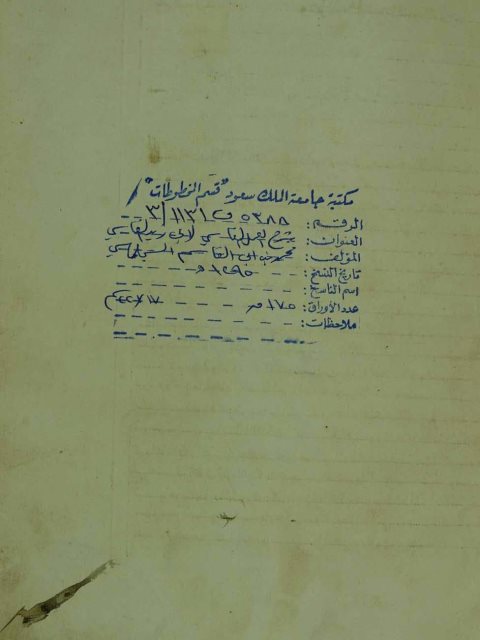 مكتبة جامعة الملك سعود "قسم المخطوطات"
الرقم: ٥٣٨٨ ف ١١٣١/٣
العنوان: شرح العمل الفاسي لأبي زيد الفاسي
المؤلف: محمد بن أبي القاسم السجلماسي
تاريخ النسخ:
اسم الناسخ:
عدد الأوراق: ١٧٥ ق
ملاحظات: